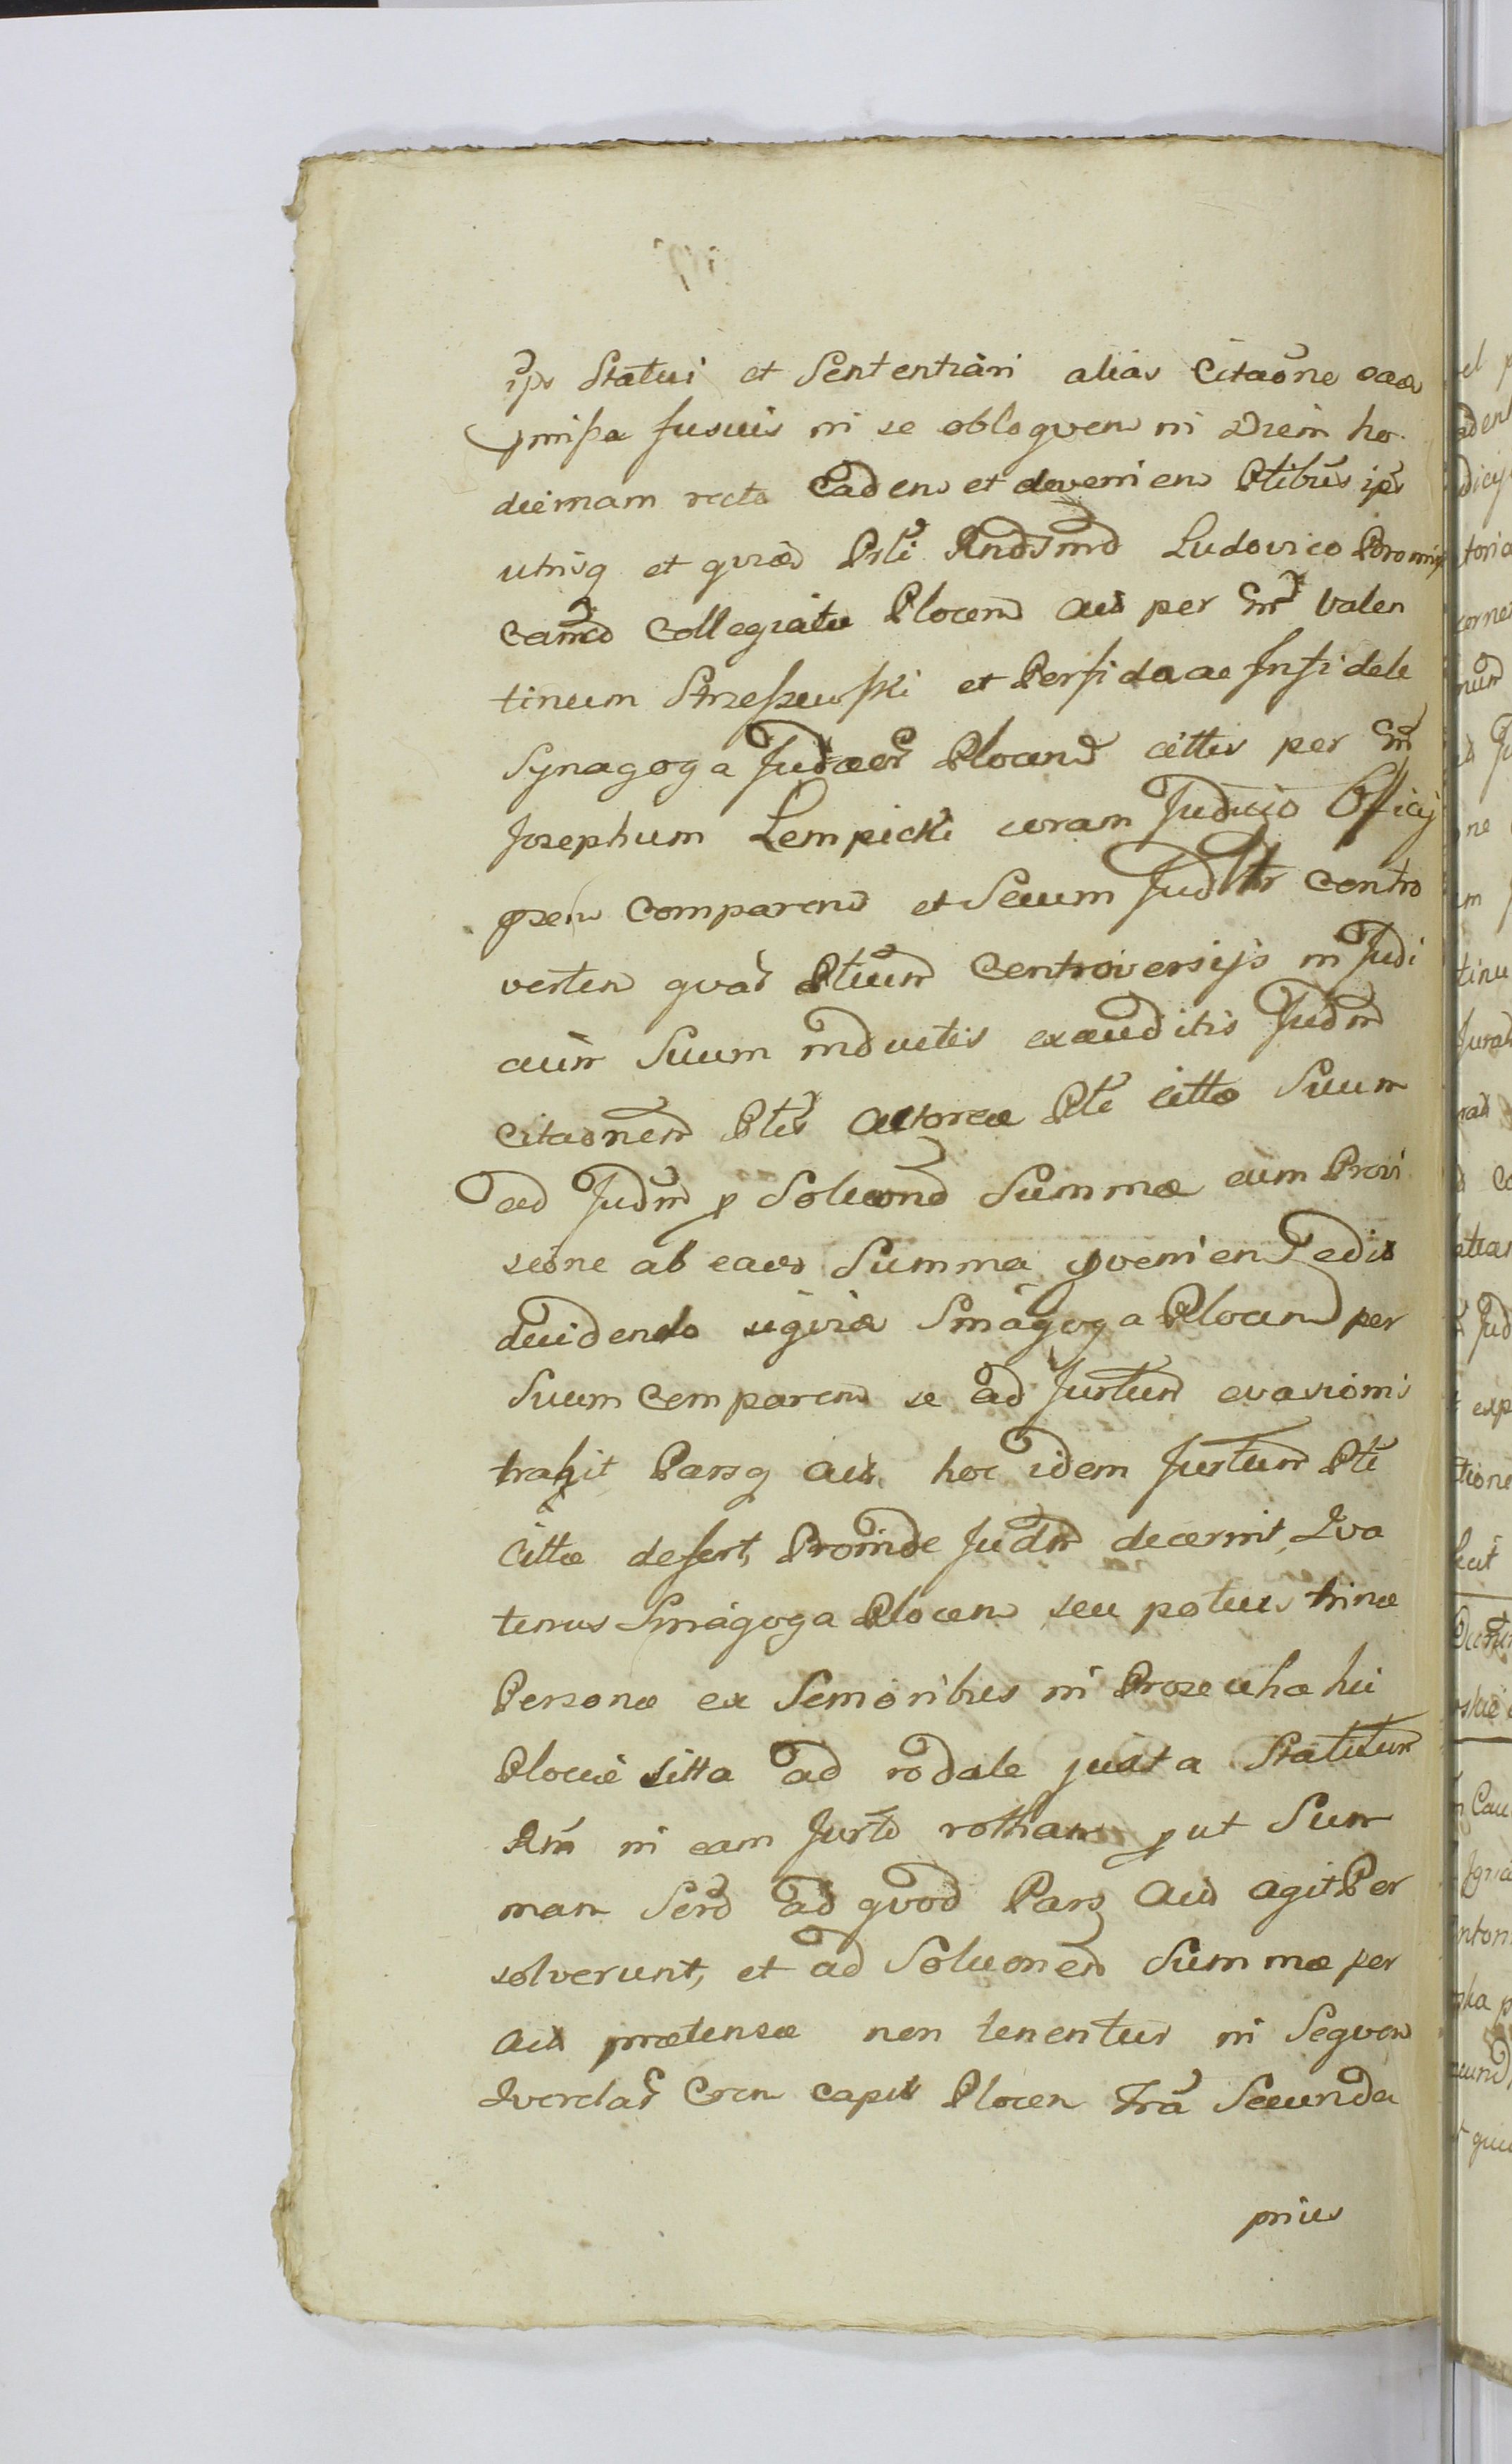 ips Statui et Sententiari alias Citaone eaõ
pmißa fusius in se obloquen in Diem ho
diernam recte Caden et devenien Ptibus ips
utrisq et quid Ptli Rndssmo Ludovico
Canco Collegiatæ Plocen Act per Gm Valen
tinum Strzeszewski et Perfidæ ac Infidele
Synagoga Judæor Plocen cittis per Gm
Josephum Lempicki coram Judicio Officij
pseu Comparen et Secum Judltr Contro
verten quar Ptium Controversijs in Judi
cium Suum inductis exauditis Judm
Citaonem Ptis Actoreæ Pte citta Suum
ad Judm p Soluone Summæ cum Provi
sione ab eadem Summa pvenien edit
deidendo siquid Sinagoga Plocen per
Suum Comparen se ad Jurtum evasionis
trahit Parsq Act hoc idem Jurtum Pti
Cittæ defert, Proinde Judm decernit Qva
tenus Sinagoga Plocen seu potius trinæ
Personæ ex Senioribus in Proseucha hic
Plociæ sitta ad rodale juxta Statutum
Rni in eam Jurto rotham put Sum
mam Serõ ad quod Pars Act agit Per
solverunt, et ad Soluonem Summæ per
Act prætensæ non tenentur in Sequen
Querelar Cren capit Plocen fra Secunda
prius